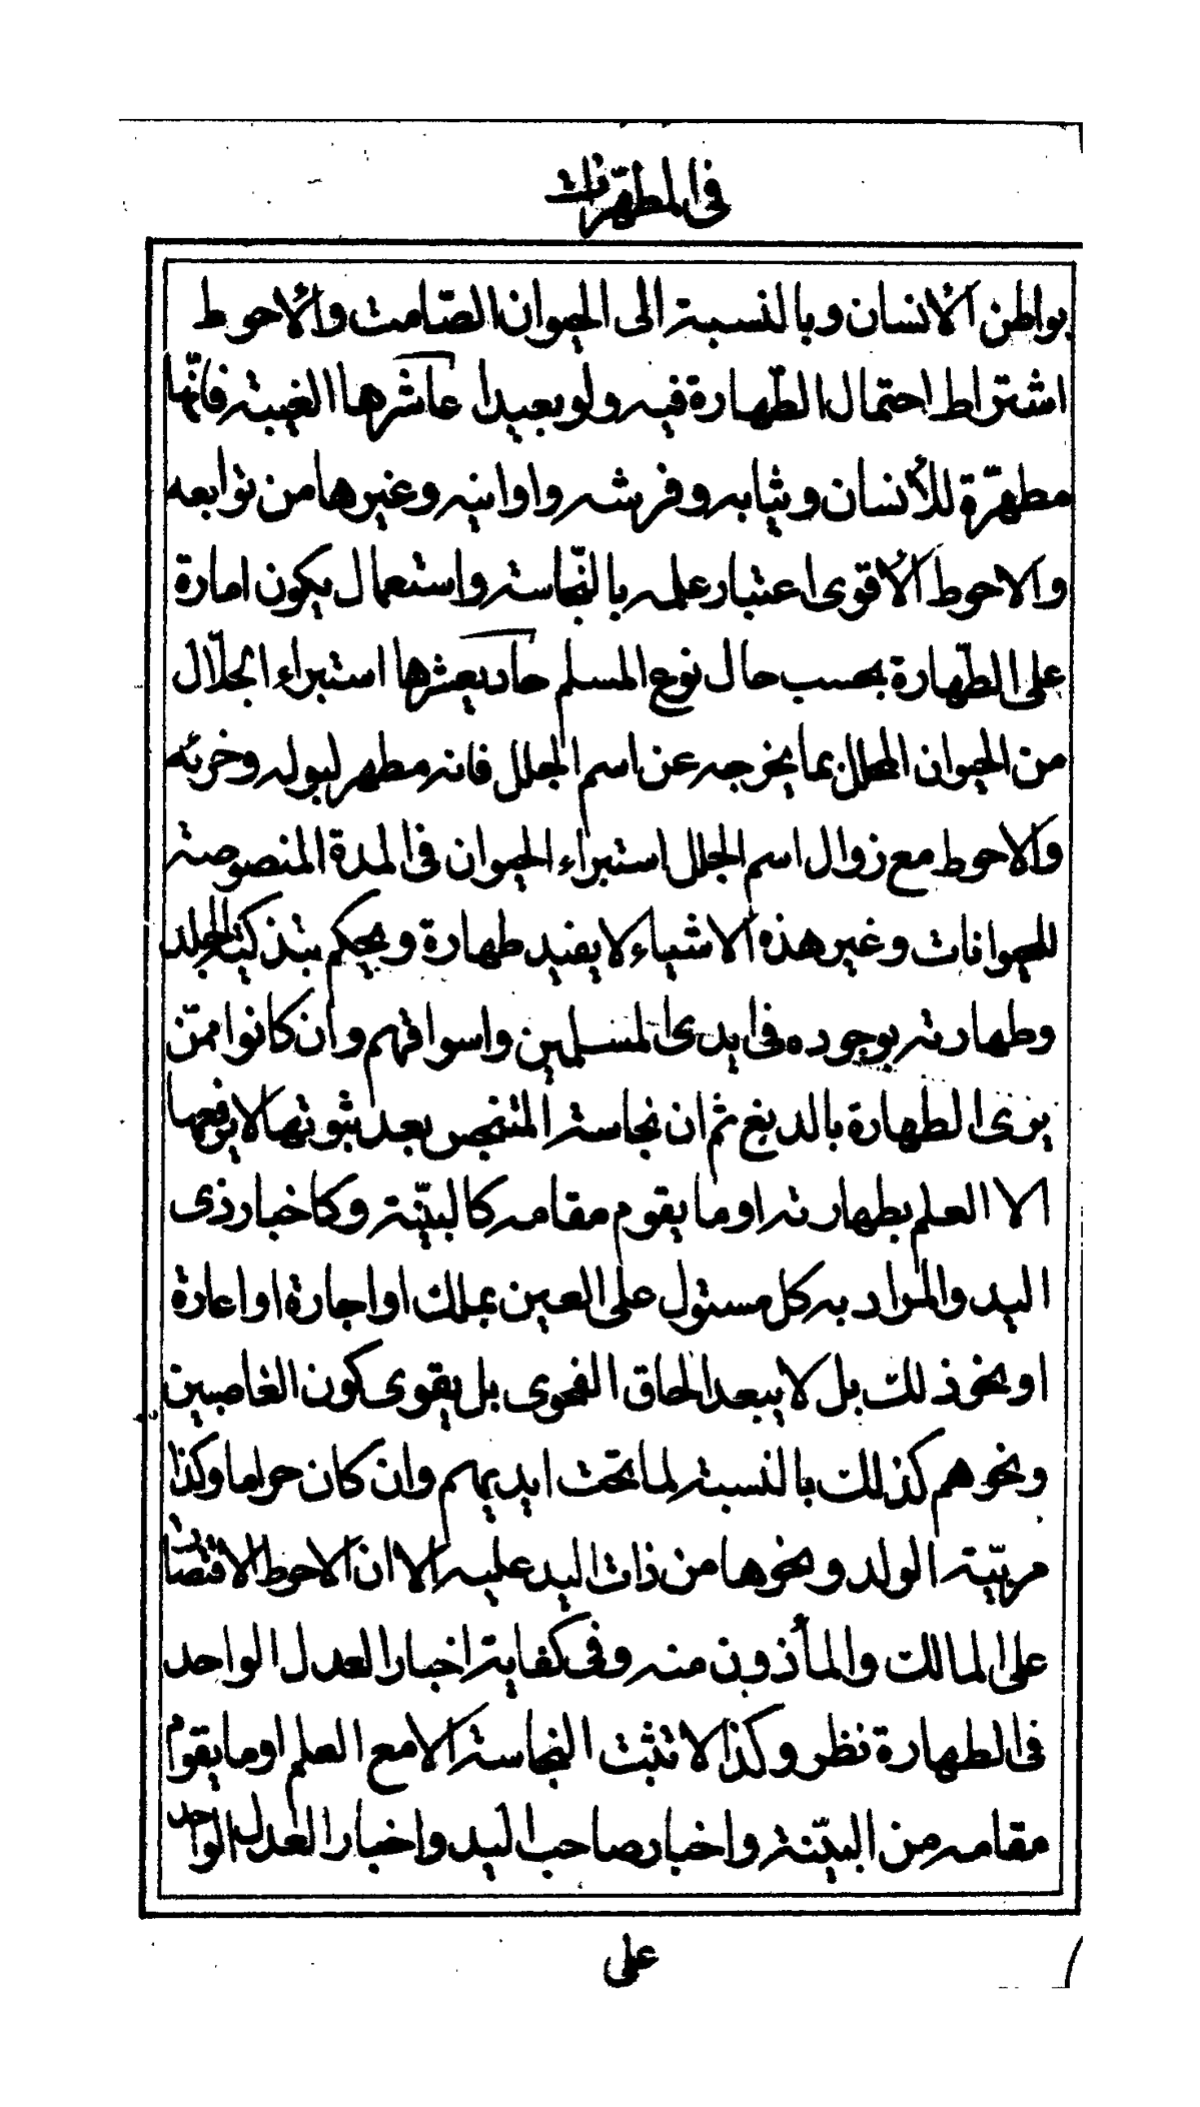 في المطهرات
بواطن الانسان وبالنسبة الى الحيوان الصّامت والاحوط
اشتراط احتمال الطّهارة فيه ولو بعيدا عاشرها الغيبة فانّها
مطهّرة للأنسان وثيابه وفرشه واوانيه وغيرها من توابعه
والاحوط الاقوى اعتبار علمه بالنّجاسة واستعمال يكون امارة
على الطّهارة بحسب حال نوع المسلم حاديعشرها استبراء الجلّال
من الحيوان المحلل بما يخرجه عن اسم الجلل فانه مطهر لبوله وخرئه
والاحوط مع زوال اسم الجلل استبراء الحيوان في المدة المنصوصة
للحيوانات وغير هذه الاشياء لا يفيد طهارة ويحكم بتذكية الجلد
وطهارته بوجوده في ايدى المسلمين واسواقهم وان كانوا ممّن
يرى الطهارة بالدبغ ثم ان نجاسة المتنجس بعد ثبوتها لا يرفعها
الا العلم بطهارته او ما يقوم مقامه كالبيّنة وكاخبار ذى
اليد والمراد به كل مستول على العين بملك او اجارة او اعارة
او نحو ذلك بل لا يبعد الحاق الفحوى بل يقوى كون الغاصبين
ونحوهم كذلك بالنسبة لما تحت ايديهم وان كان حراما وكذا
مربيّة الولد ونحوها من ذات اليد عليه الا ان الاحوط الاقتصار
على المالك والمأذون منه وفى كفاية اخبار العدل الواحد
في الطهارة نظر وكذا لا تثبت النجاسة الا مع العلم او ما يقوم
مقامه من البيّنة واخبار صاحب اليد واخبار العدل الواحد
على